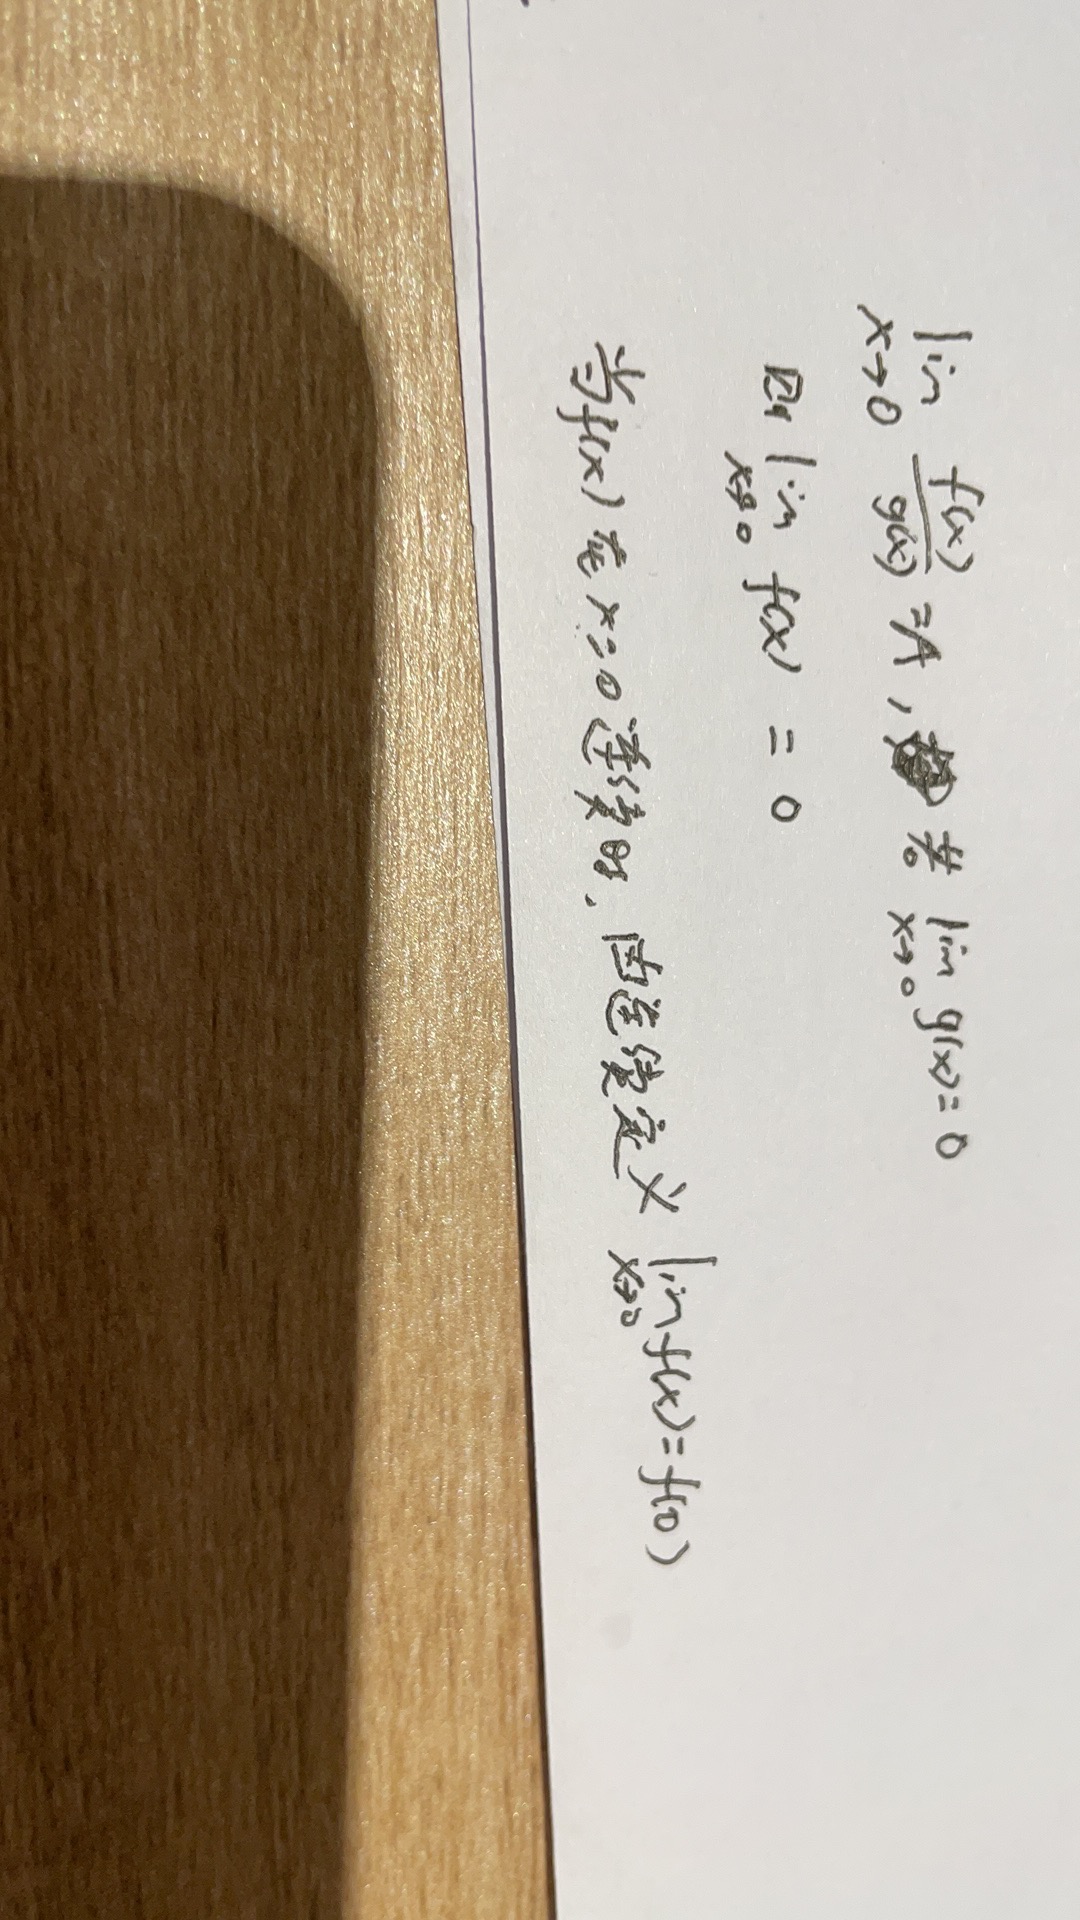 lim x→0 f(x)/g(x) = A , 若 lim x→0 g(x) = 0
则 lim x→0 f(x) = 0
当f(x) 在 x=0 连续时, 由连续定义 lim x→0 f(x) = f(0)